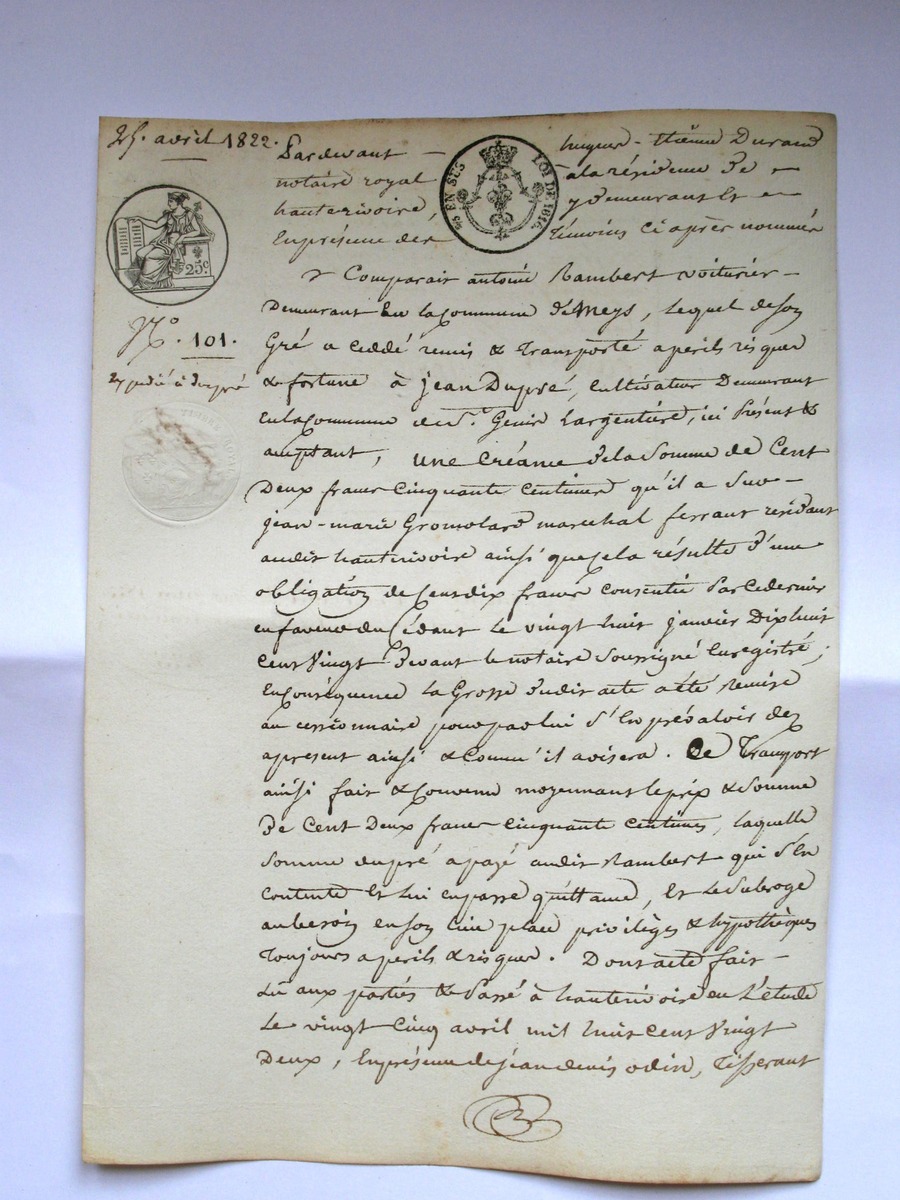 25. avril 1822.
Pardevant hugues-Etiënne Durand
notaire royal à la résidence de
hauterivoire, y demeurant et
En présence des Témoins ci après nommés
EN SUS LOI DE 1816
25c
N.º 101.
Expédié à Dupré
Comparait antoine Rambert voiturier
Demeurant En la Commune De Meys, lequel de son
Gré a ceddé remis & transporté a périls risques
& fortune à jean Dupré, cultivateur Demeurant
en la Commune de St. Genis Largentière, ici présent &
acceptant, une Créance de la Somme de Cent
Deux francs Cinquante centimes qu'il a Sur
jean-marie Gromolard marechal ferrant résidant
audit hauterivoire ainsi que cela résulte d'une
obligation de Cent dix francs consentie Par ce dernier
en faveur du Cédant le vingt huit janvier Dix huit
cent Vingt Devant le notaire Soussigné Enregistré ;
En conséquence la Grosse dudit acte a été remise
au cessionnaire pour par lui S'En prévaloir des
apresent ainsi & Comm'il avisera. Ce Transport
ainsi fait & Convenu moyennant le prix & Somme
De Cent Deux francs cinquante centimes, laquelle
Somme dupré a payé audit Rambert qui S'En
contente Et lui en passe quittance, Et le Subroge
au besoin en son lieu place privilèges & hypothèques
Toujours a périls & risques. Dont acte fait
Lû aux parties & Passé à hauterivoire en L'étude
Le vingt Cinq avril mil huit cent Vingt
Deux, En présence de jean denis odin, Tisserant